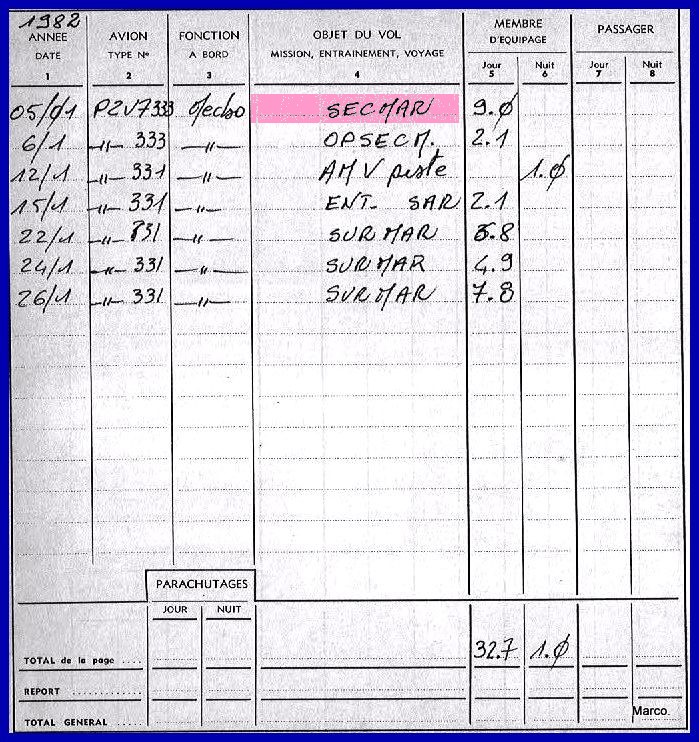 1982
ANNEE AVION FONCTION OBJET DU VOL MEMBRE D'EQUIPAGE PASSAGER
DATE TYPE Nº A BORD MISSION, ENTRAINEMENT, VOYAGE Jour Nuit Jour Nuit
1 2 3 4 5 6 7 8
05/01 P2V7 333 Mecbo SECMAR 9.0
6/1 -"- 333 -"- OPSECM. 2.1
12/1 -"- 331 -"- AMV piste 1.0
15/1 -"- 331 -"- ENT. SAR 2.1
22/1 -"- 331 -"- SURMAR 6.8
24/1 -"- 331 -"- SURMAR 4.9
26/1 -"- 331 -"- SURMAR 7.8
PARACHUTAGES
JOUR NUIT
TOTAL de la page .... 32.7 1.0
REPORT
TOTAL GENERAL
Marco.